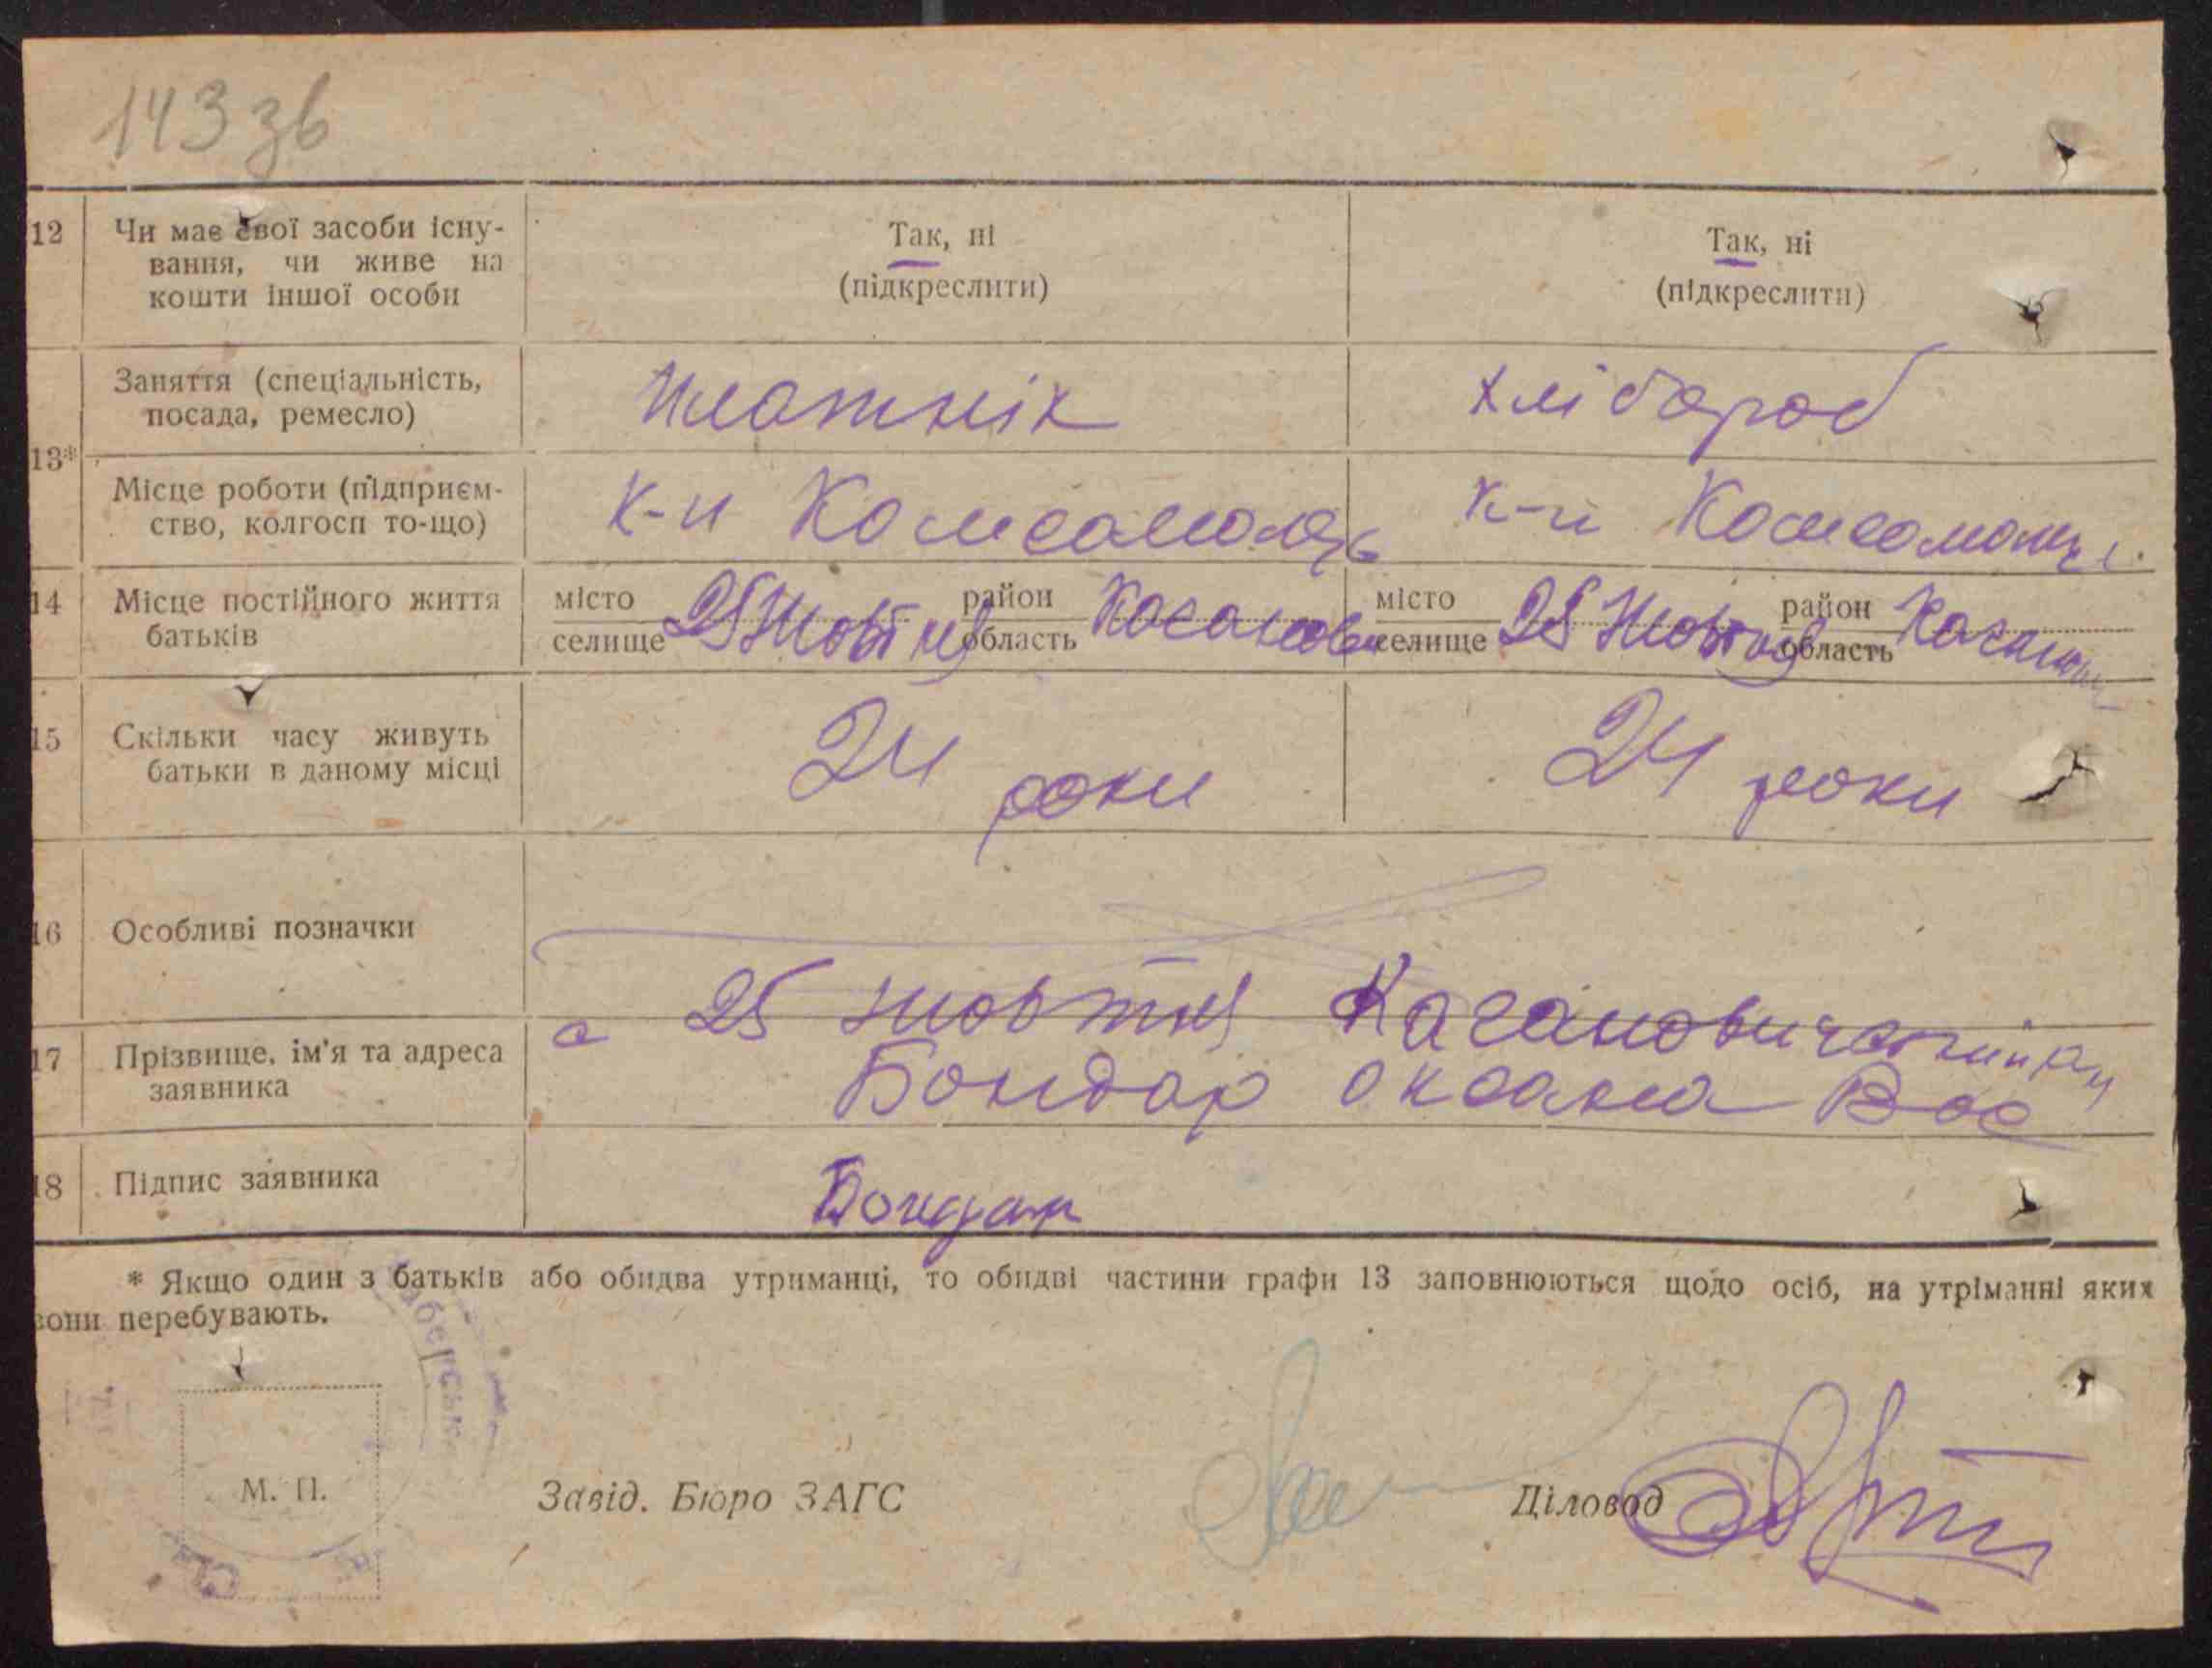 143 зв
12 Чи має свої засоби існу-
вання, чи живе на
кошти іншої особи
Так, ні
(підкреслити)
Так, ні
(підкреслити)
13*
Заняття (спеціальність,
посада, ремесло)
Плотнік
хлібороб
Місце роботи (підприєм-
ство, колгосп то-що)
к-п Комсомолець
к-п
14 Місце постійного життя
батьків
місто
селище
25 Жовтня
район
область
місто
селище
25 Жовтня
район
область
15 Скільки часу живуть
батьки в даному місці
24 роки
24 роки
16 Особливі позначки
с 25 жовтня
17 Прізвище, ім'я та адреса
заявника
Бондар Оксана Вас
18 Підпис заявника
Бондар
* Якщо один з батьків або обидва утриманці, то обидві частини графи 13 заповнюються щодо осіб, на утріманні яких
вони перебувають.
М. П.
Завід. Бюро ЗАГС
Діловод